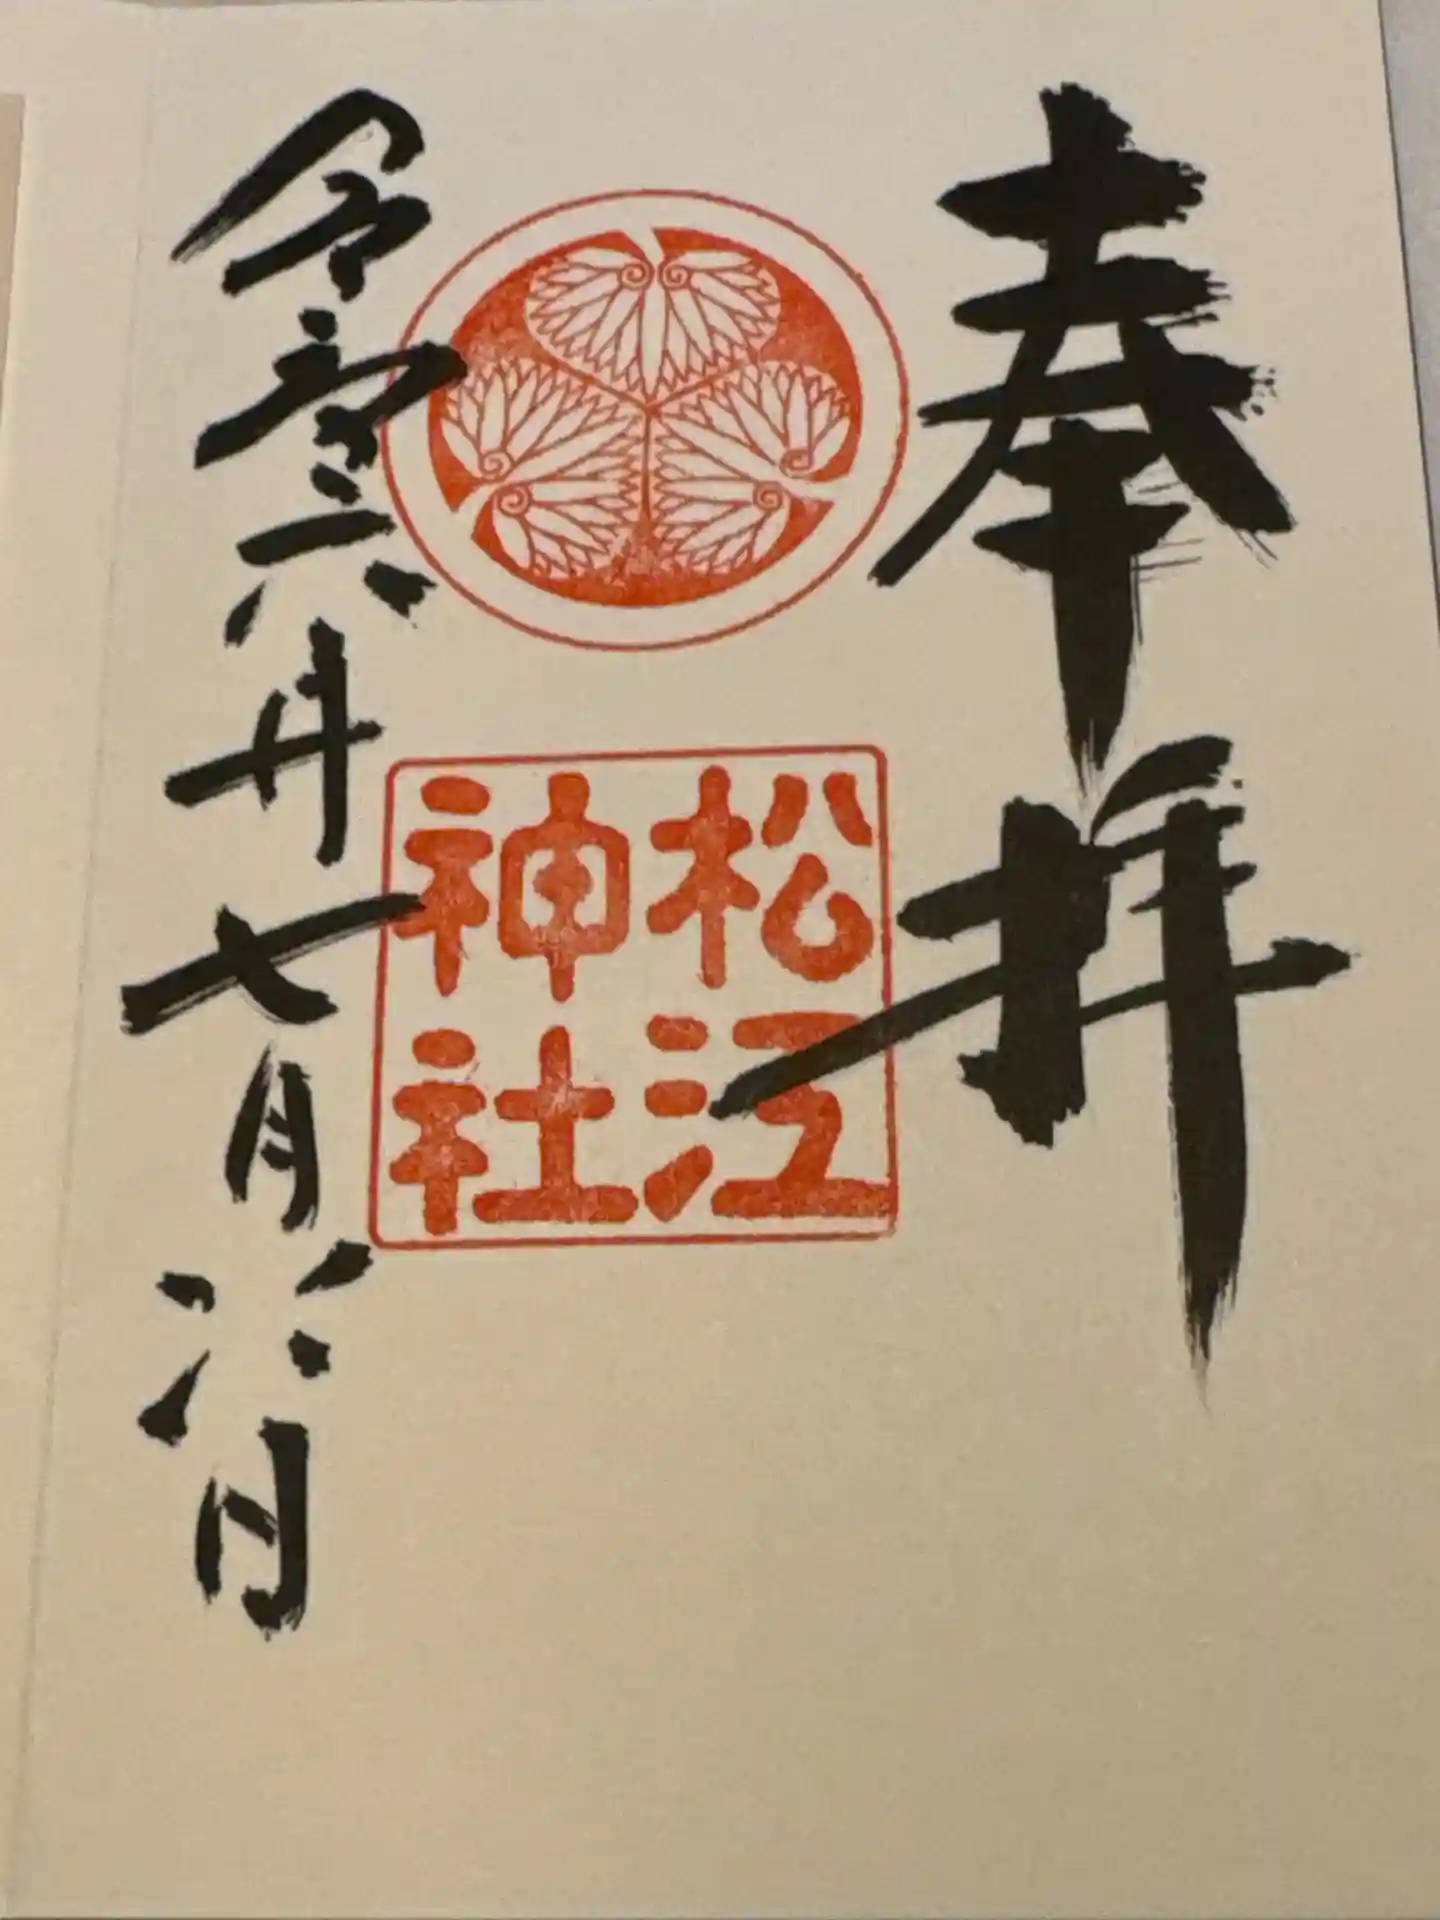 奉拝
松江
神社
令和六年七月日